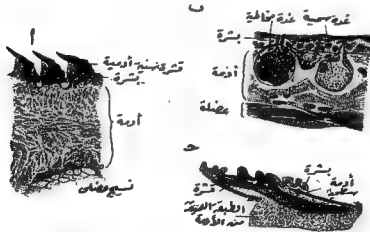 أ
قشرة سنية أدمية
بشرة
أدمة
نسيج عضلي
ب
غدة سمية
غدة مخاطية
بشرة
أدمة
عضلة
حـ
بشرة
أدمة
قشرة
الطبقة
من الأدمة